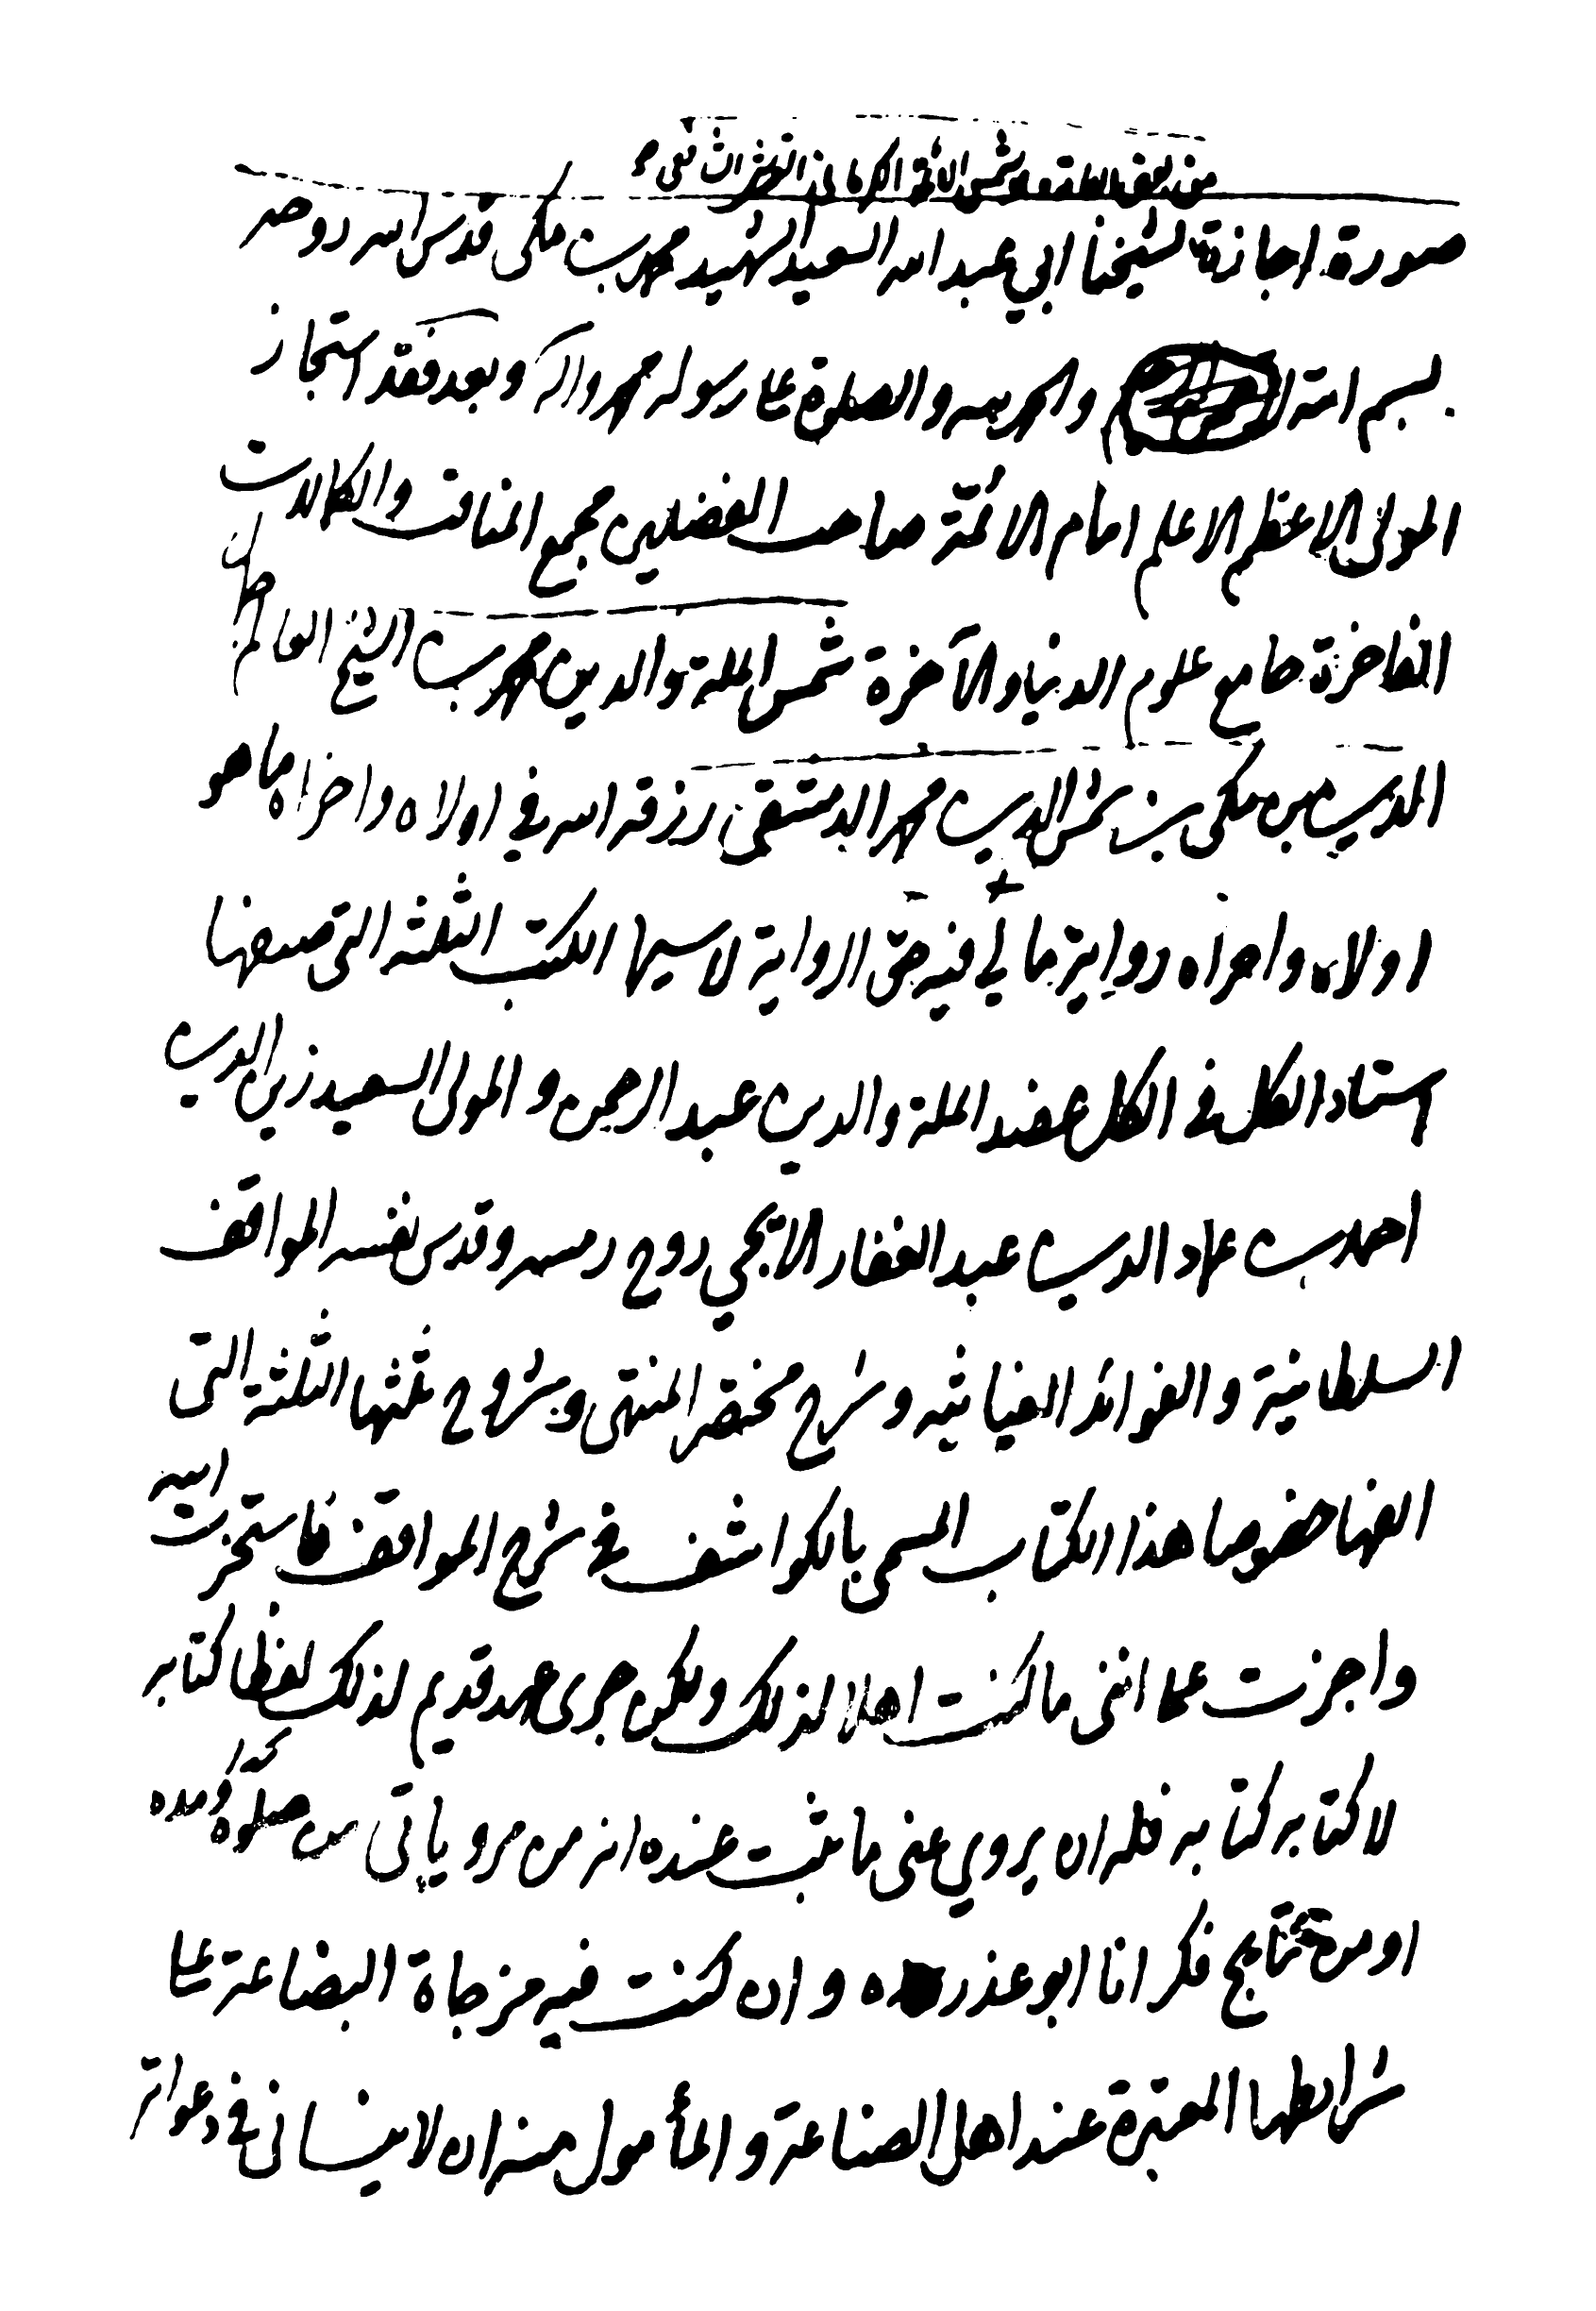 من شمس الائمة الكرماني القرشي الشافعي
صورة اجازة لشيخنا ابي عبد الله السعيد الشهيد محمد بن مكي قدس الله روحه
بسم الله والحمد لله والصلوة على رسوله محمد وآله وبعد فقد استجاز
المولى الاعظم الاعلم امام الائمة صاحب الفضلين مجمع المناقب والكمالات
الفاخرة جامع علوم الدنيا والآخرة شمس الملة والدين محمد بن الشيخ العالم جمال
الدين بن مكي بن شمس الدين محمد الدمشقي رزقه الله في اولاه واخراه ما هو
اولاه واحراه رواية ما لي فيه حق الرواية لا سيما الكتب الثلثة التي صنفها
استاد الكل في الكل عضد الملة والدين عبد الرحمن والمولى السعيد زين الدين
احمد بن عماد الدين عبد الغفار الايجي روح رمسه وقدس نفسه المواقف
السلطانية والفوائد الغياثيه وشرح مختصر المنتهى وشروح ثلثها الثلثة التي
الفها خصوصا هذا الكتاب المسمى بالكواشف في شرح المواقف فاستخرت الله
واجزت على انني ما كنت اهلا لذلك ولكن جرى عهد قديم لذلك لفظا كتابه
لا كتابه كتابه فله ان يروي عني ما ثبت عنده انه من مروياتي من
او من نتايج فكر انا ابو عذره وان كنت فيه مزجاة البضاعة على
شرايطها المعتبرة عند اهل الصناعة والمأمول منه ان لا ينساني في دعواته